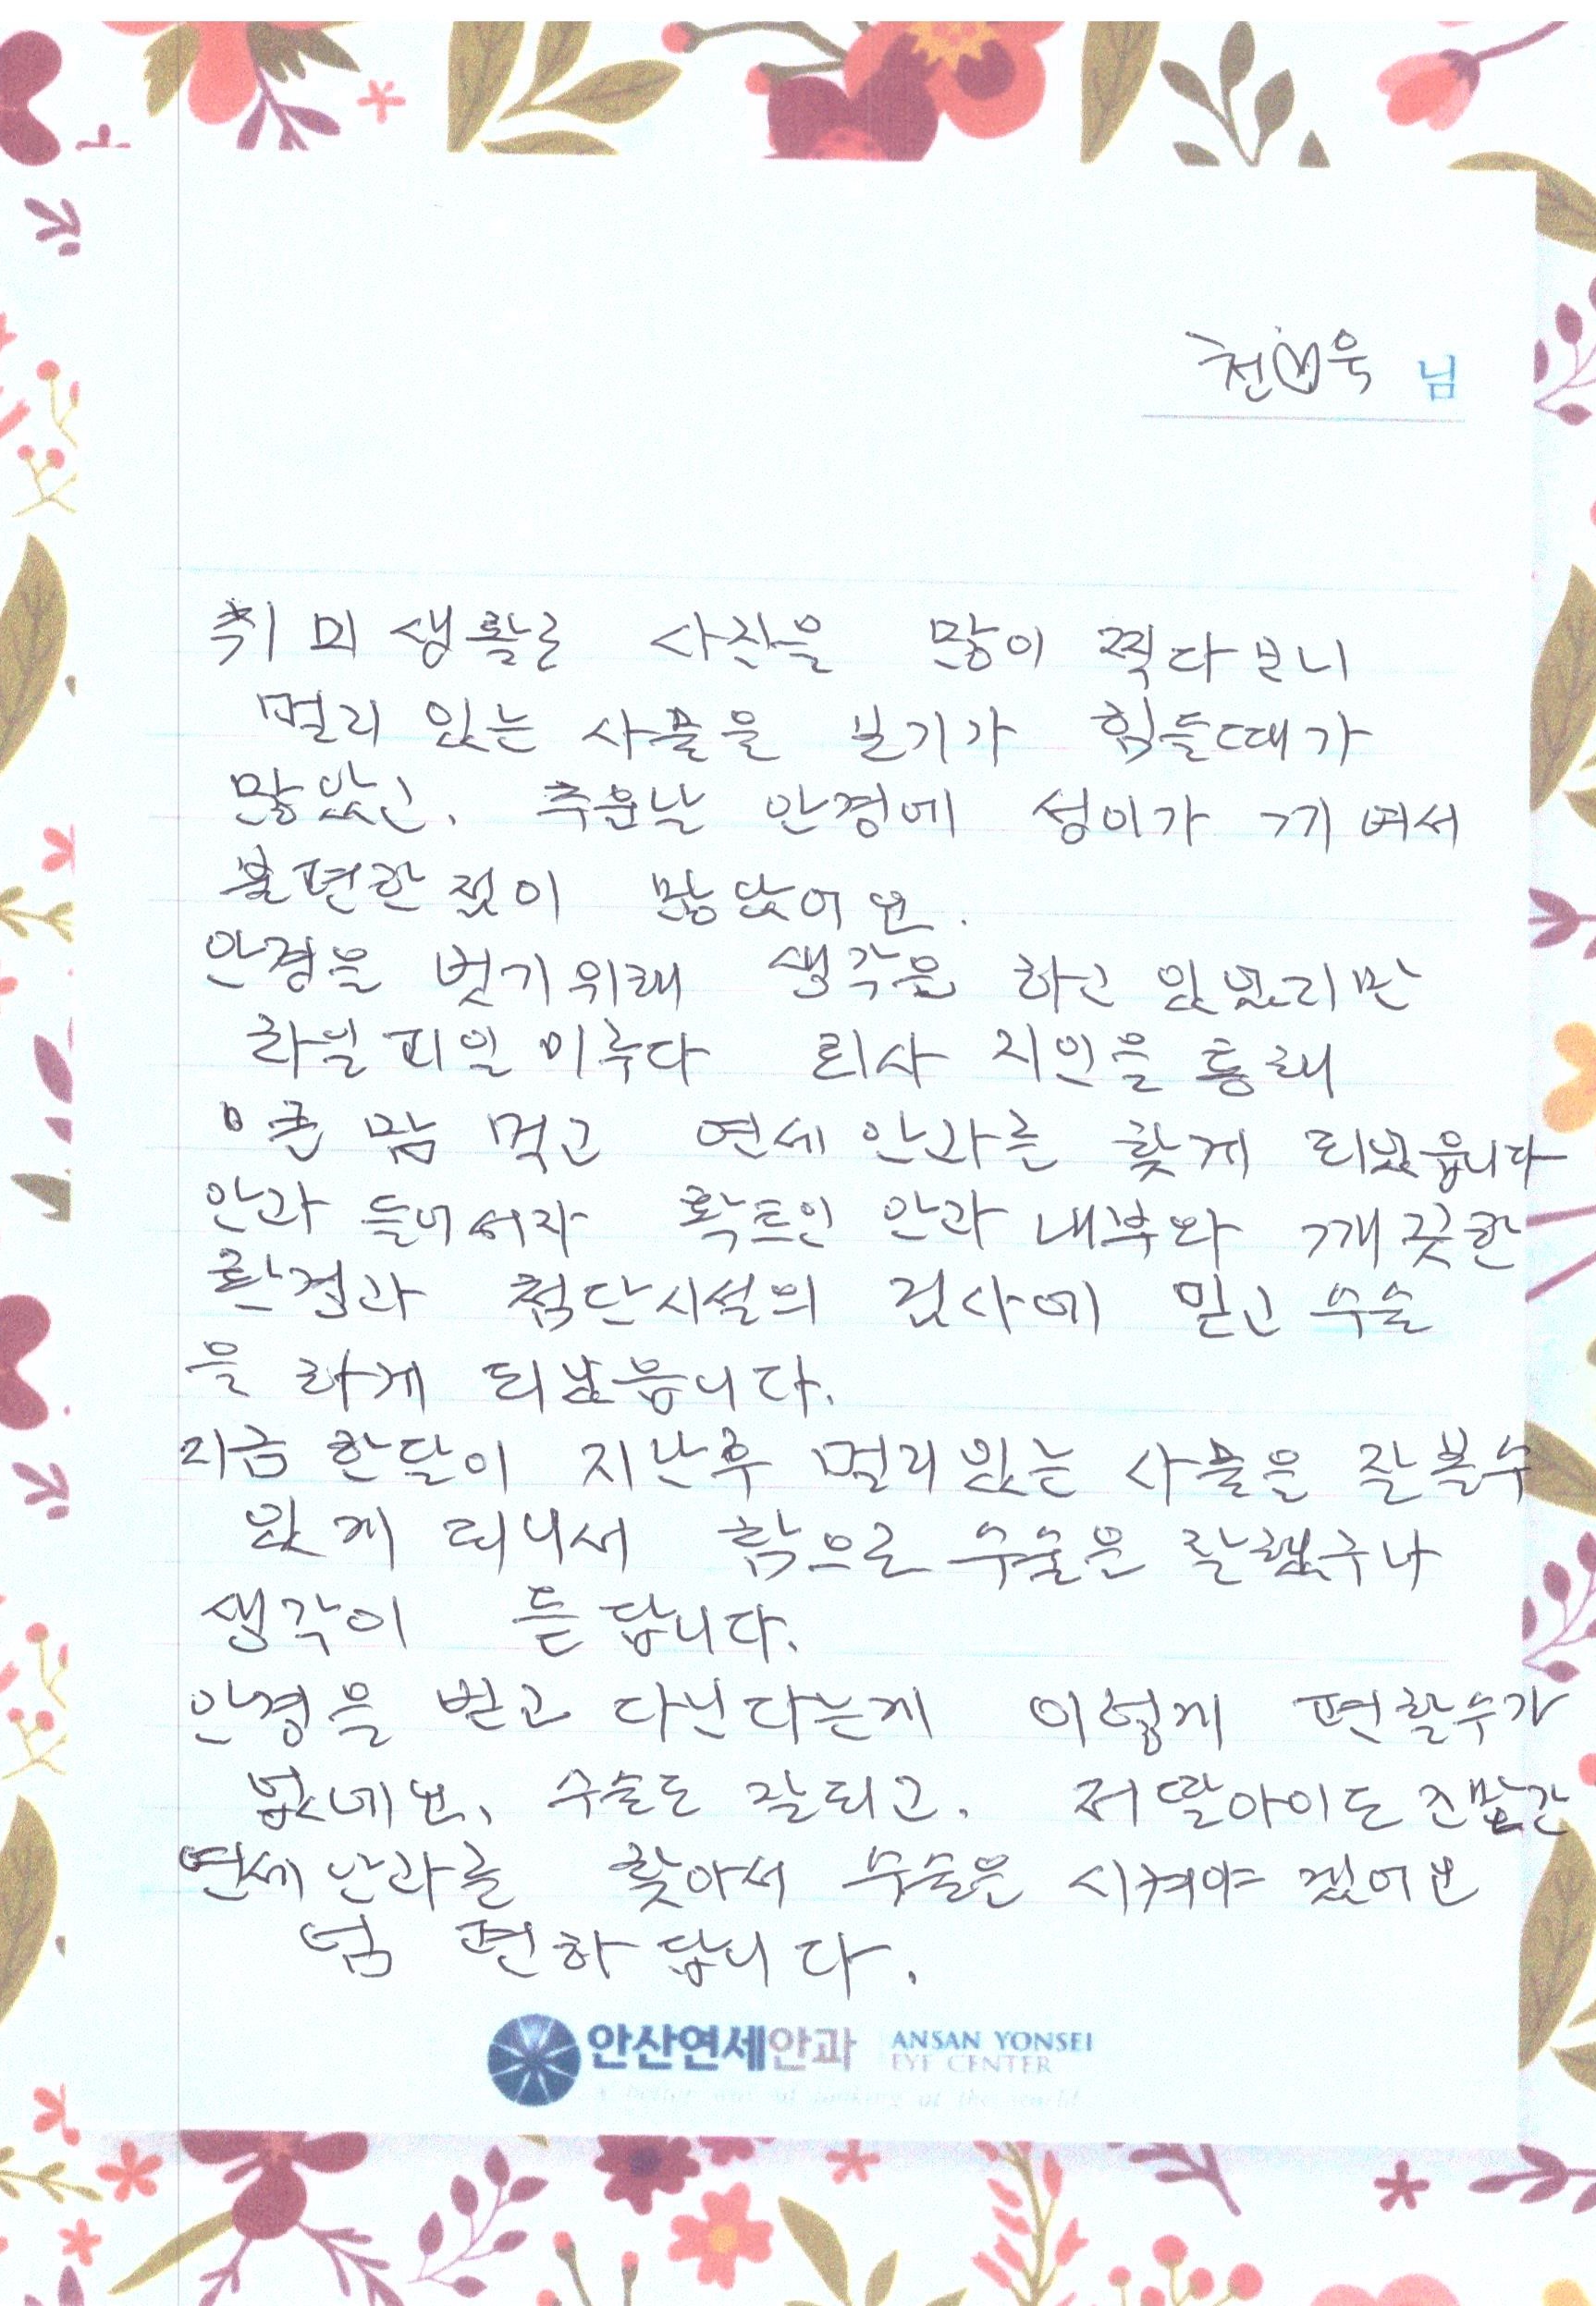 천♡욱 님
취미생활로 사진을 많이 찍다보니
멀리 있는 사물을 보기가 힘들때가
많았고, 추운날 안경에 성이가 끼여서
불편한점이 많았어요.
안경을 벗기위해 생각은 하고 있었지만
차일피일 미루다 회사 지인을 통해
큰 맘 먹고 연세안과를 찾게 되었읍니다
안과 들어서자 확트인 안과 내부와 깨끗한
환경과 첨단시설의 검사에 믿고 수술
을 하게 되었읍니다.
지금 한달이 지난후 멀리있는 사물을 잘볼수
있게 되니서 참으로 수술은 잘했구나
생각이 든답니다.
안경을 벋고 다닌다는게 이렇게 편할수가
없네요, 수술도 잘되고, 저 딸아이도 조만간
연세안과를 찾아서 수술은 시켜야 겠어요
넘 편하답니다.
안산연세안과 ANSAN YONSEI
EYE CENTER